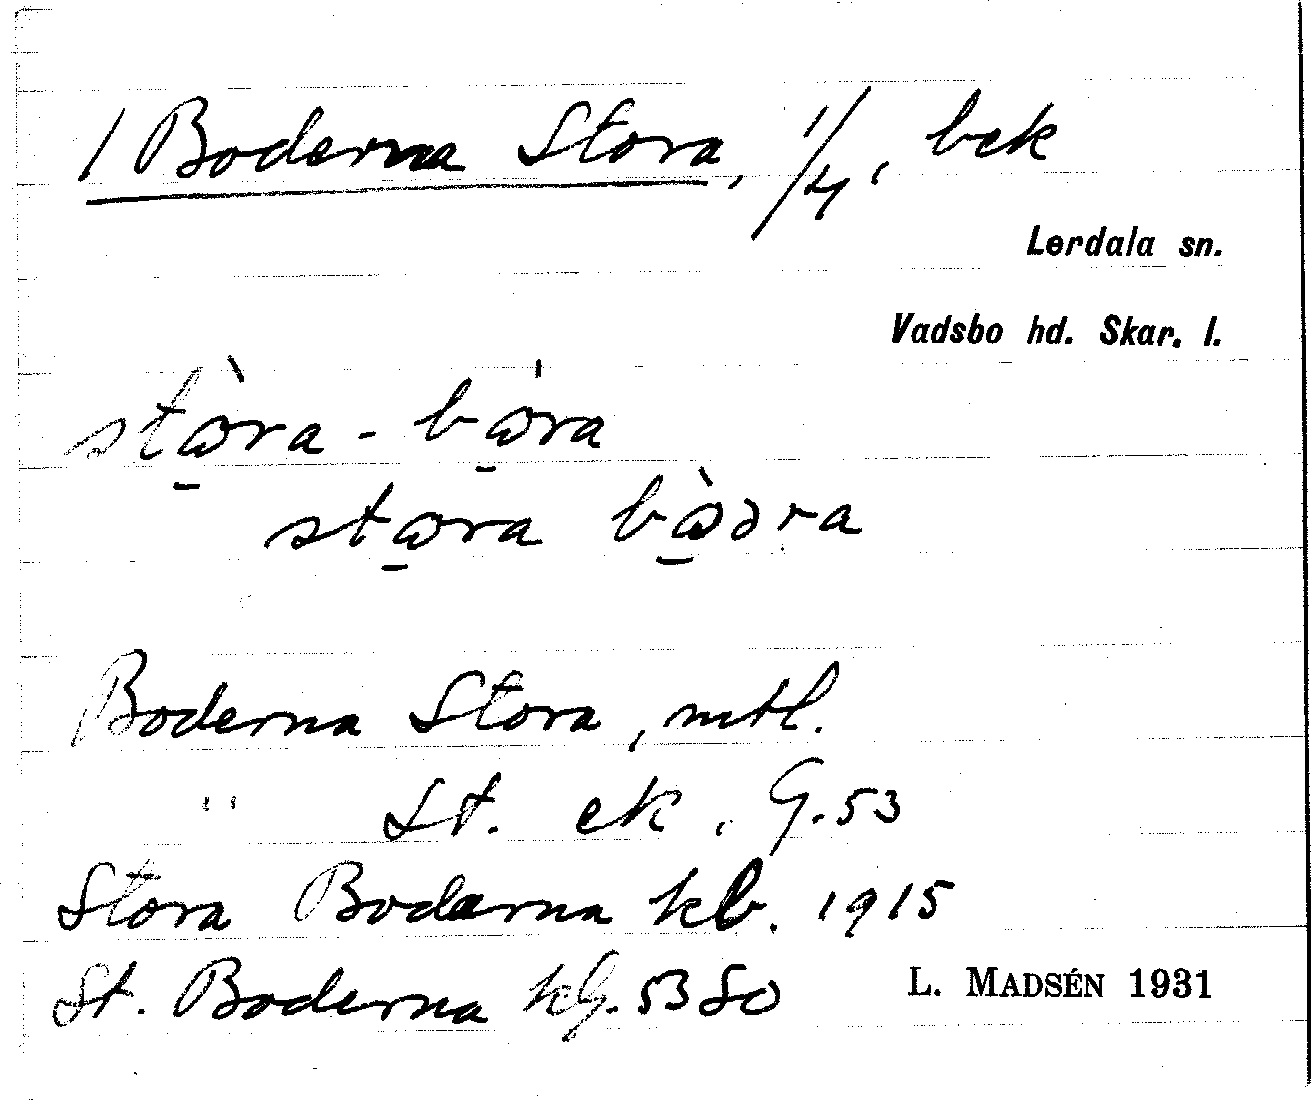 1 Boderna Stora, 1/4, bek
Lerdala sn.
Vadsbo hd. Skar. l.
stὼ̠ra - bώ̠ra
stω̠ra bὼ̠əra
Boderna Stora, mtl.
" St. ek. G. 53
Stora Boderna kb. 1915
St. Boderna kG. 53 SO
L. MADSÉN 1931